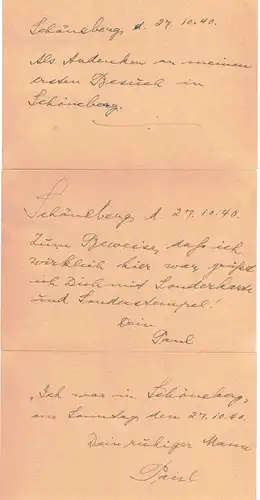 Schöneberg, d. 27.10.40.
Als Andenken an meinen
ersten Besuch in
Schöneberg.
Schöneberg, d. 27.10.40.
Zum Beweise, daß ich
wirklich hier war, grüßt
ich Dich mit Sonderkarte
und Sonderstempel!
Dein
Paul
"Ich war in Schöneberg,
am Sonntag, den 27.10.40.
Dein ruhiger Mann
Paul